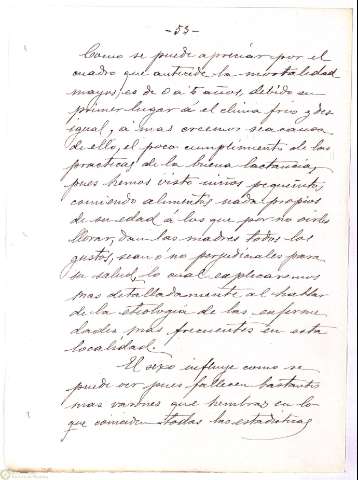 -53-
Como se puede apreciar por el
cuadro que antecede la mortalidad
mayor, es de 0 a 5 años, debido en
primer lugar á el clima frio y des
igual, á mas creemos sea causa
de ello, el poco cumplimiento de las
practicas de la buena lactancia,
pues hemos visto niños pequeñitos
comiendo alimentos nada propios
de su edad á los que por no oirles
llorar, dan las madres todos los
gustos, sean o no perjudiciales para
su salud, lo cual explicaremos
mas detalladamente al hablar
de la etiología de las enferme
dades mas frecuentes en esta
localidad.
El sexo influye como se
puede ver pues fallecen bastantes
mas varones que hembras en lo
que coinciden todas las estadisticas